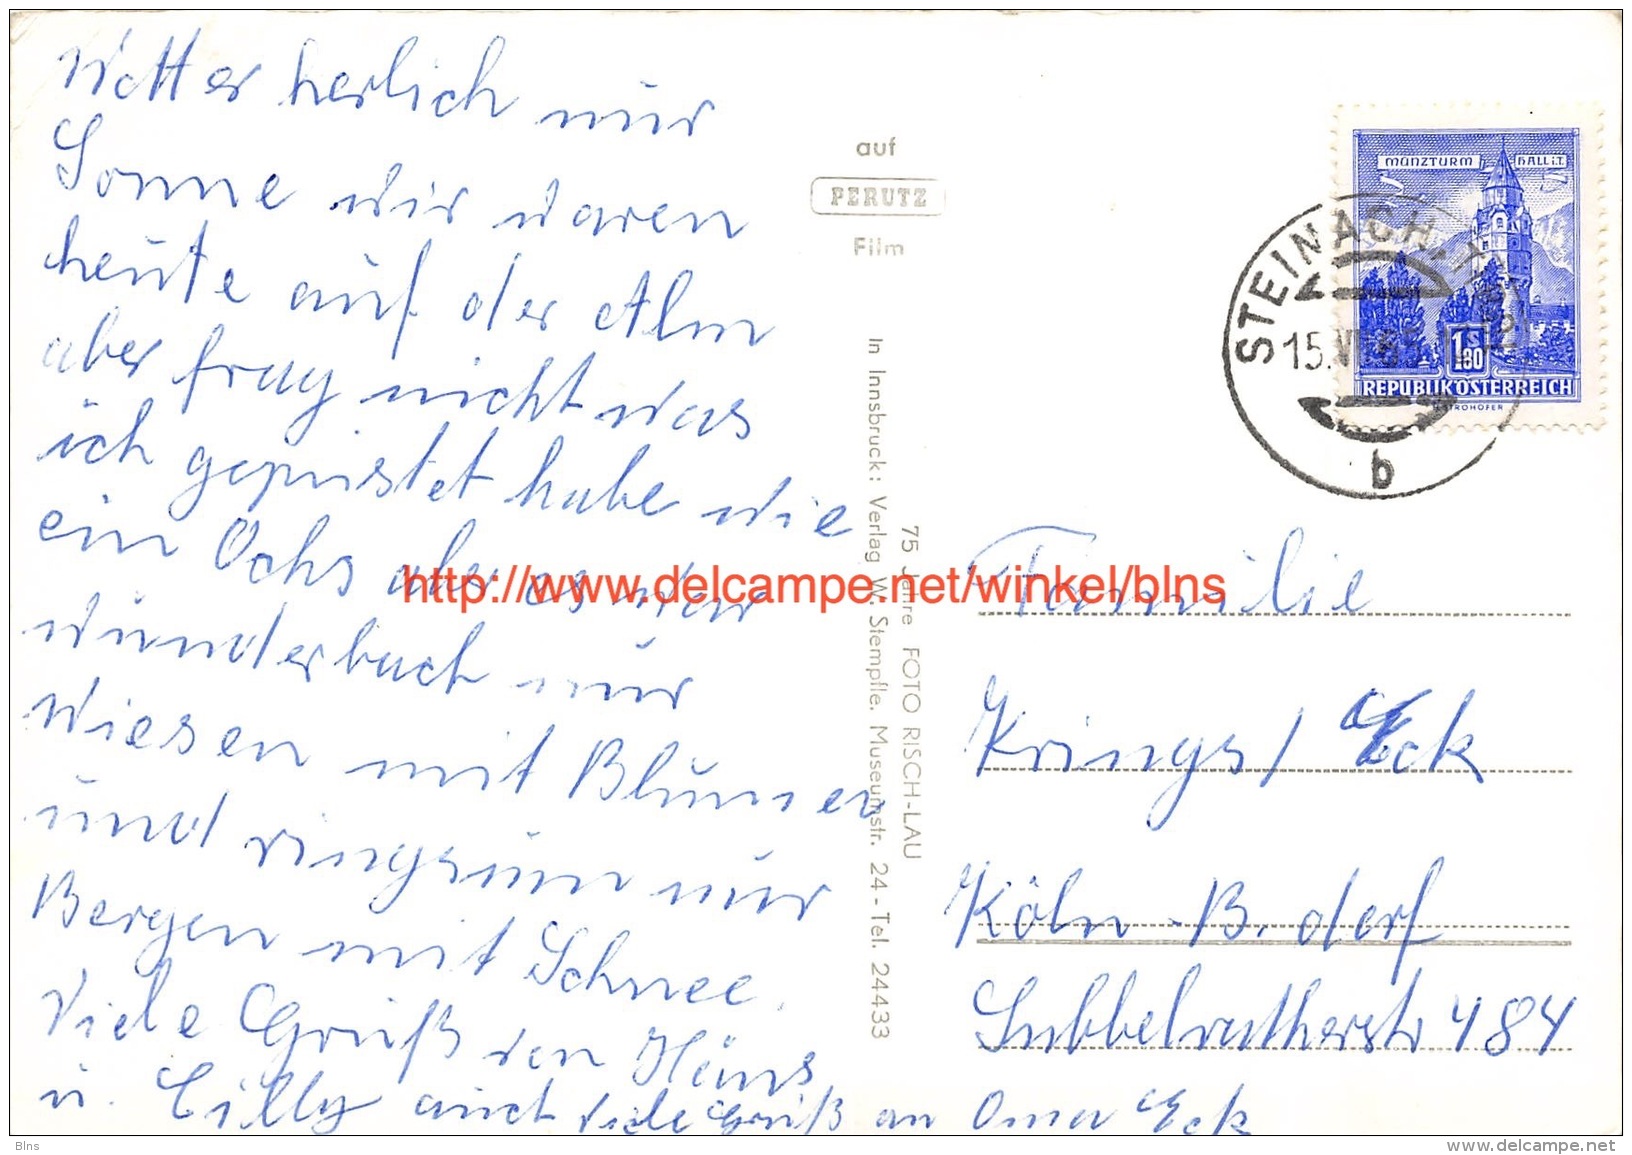 Wetter herlich nur
Sonne wir waren
heute auf der Alm
aber frag nicht was
ich gepustet habe wie
ein Ochs aber es war
wunderbach nur
Wiesen mit Blumen
und ringsum nur
Bergen mit Schnee.
Viele Grüß von Häns
u. Cilly auch viele Grüß an Oma Eck
auf
PERUTZ
Film
75 Jahre FOTO RISCH-LAU
In Innsbruck: Verlag W. Stempfle. Museumstr. 24 - Tel. 24433
MÜNZTURM HALL i.T.
1.80 S
REPUBLIK ÖSTERREICH
STROHOFER
STEINACH,
15.VI
b
Familie
Krings / Eck
Köln - B. derf
Lubbelratherstr 484
http://www.delcampe.net/winkel/blns
Blns
www.delcampe.net